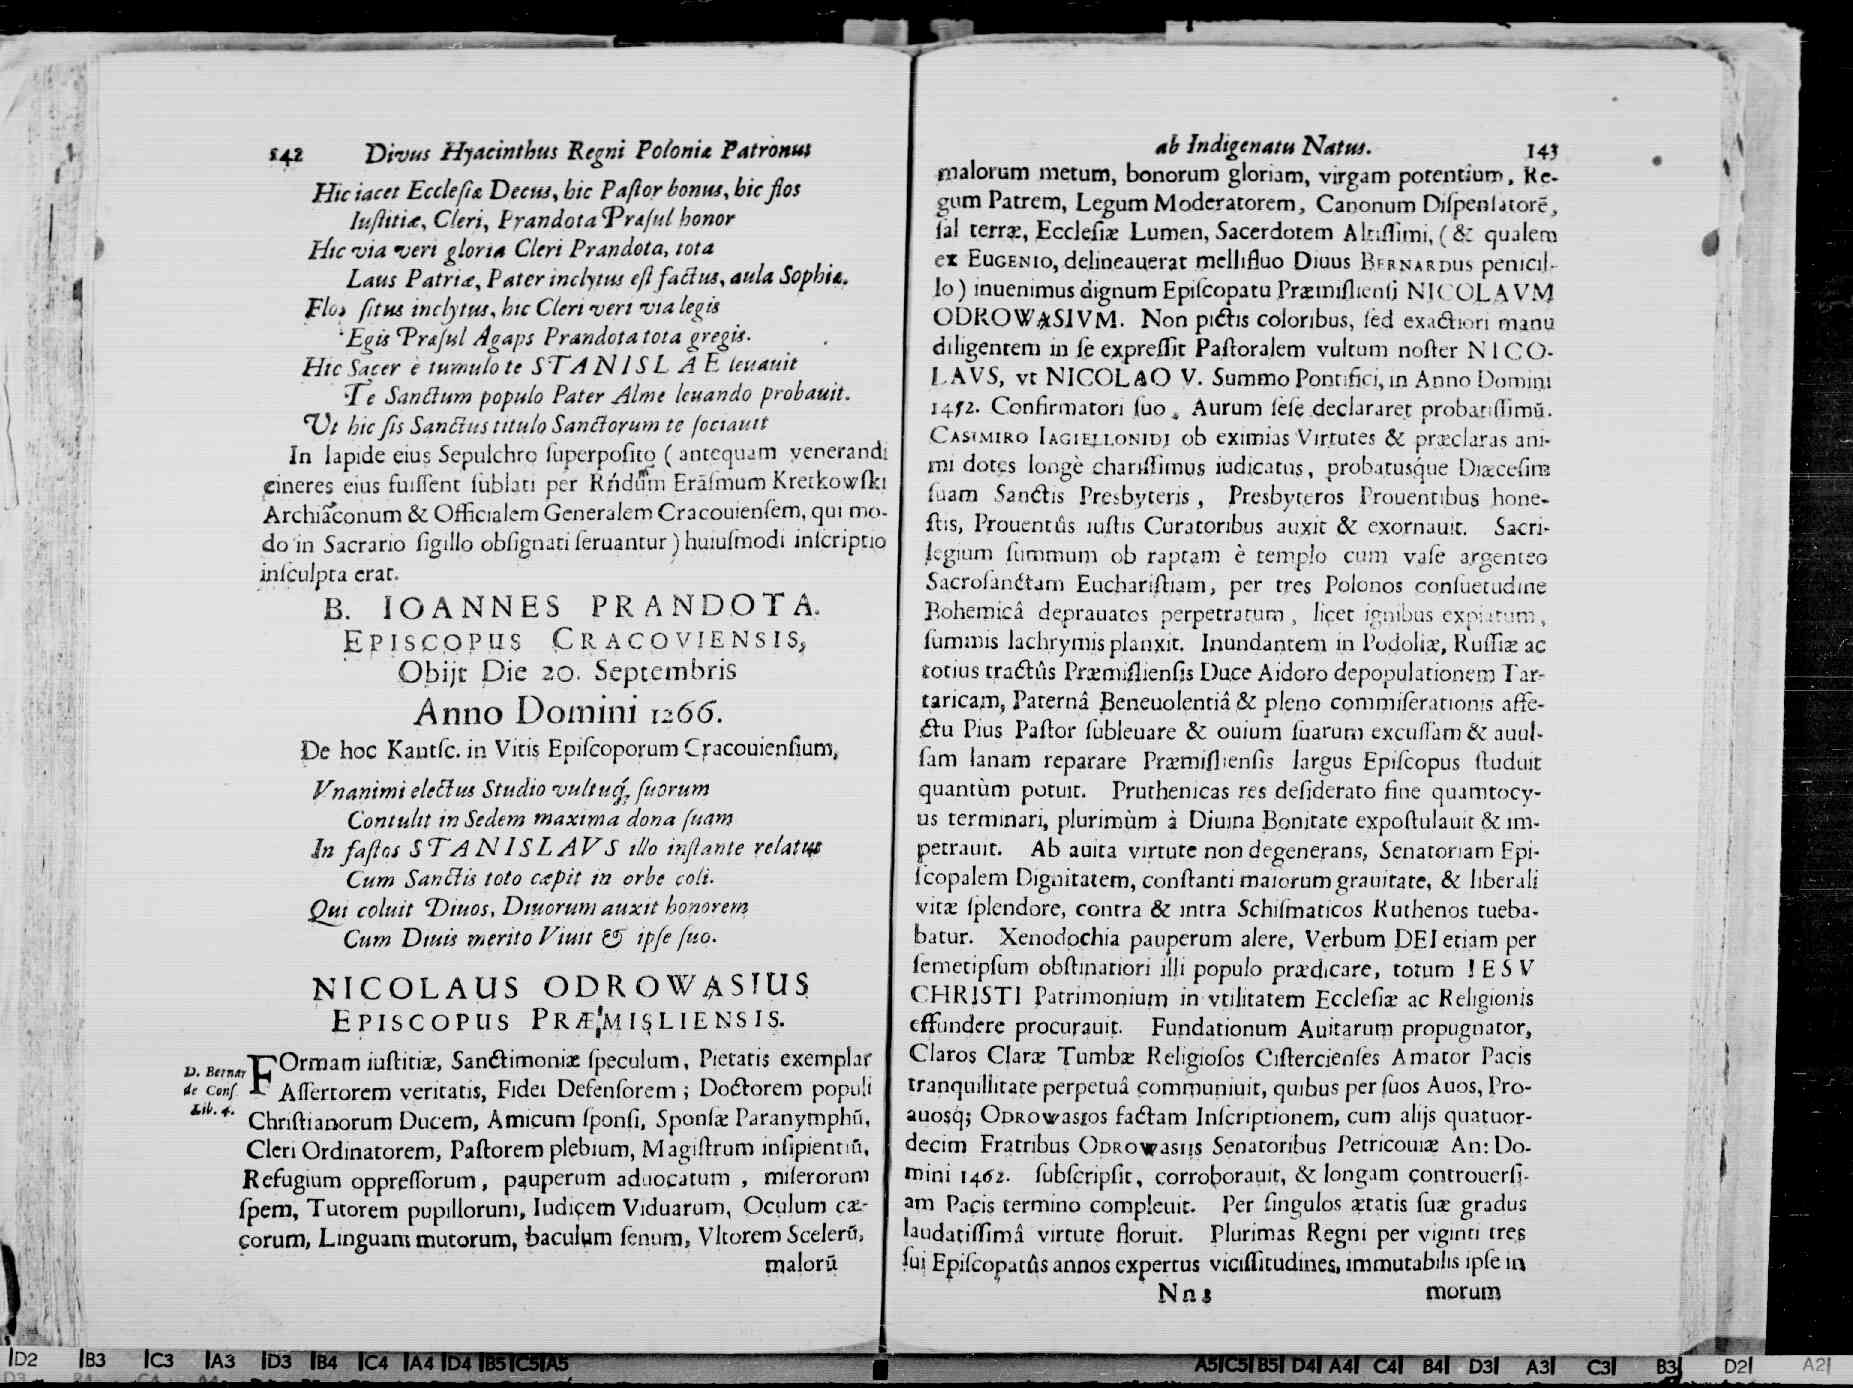 142 Divus Hyacinthus Regni Poloniæ Patronus
Hic iacet Ecclesiæ Decus, hic Pastor bonus, hic flos
Iustitiæ, Cleri, Prandota Præsul honor
Hic via veri gloria Cleri Prandota, tota
Laus Patriæ, Pater inclytus est factus, aula Sophiæ.
Flos situs inclytus, hic Cleri veri via legis
Egis Præsul Agaps Prandota tota gregis.
Hic Sacer è tumulo te STANISLAE leuauit
Te Sanctum populo Pater Alme leuando probauit.
Ut hic sis Sanctus titulo Sanctorum te sociauit
In lapide eius Sepulchro superposito (antequam venerandi
cineres eius fuissent sublati per Rńdum̃ Erãsmum Kretkowski
Archiãconum & Officialem Generalem Cracouiensem, qui mo-
do in Sacrario sigillo obsignati seruantur) huiusmodi inscriptio
insculpta erat.
B. IOANNES PRANDOTA.
EPISCOPUS CRACOVIENSIS,
Obijt Die 20. Septembris
Anno Domini 1266.
De hoc Kantsc. in Vitis Episcoporum Cracouiensium,
Vnanimi electus Studio vultuq́; suorum
Contulit in Sedem maxima dona suam
In fastos STANISLAVS illo instante relatus
Cum Sanctis toto cæpit in orbe coli.
Qui coluit Diuos, Diuorum auxit honorem
Cum Diuis merito Viuit & ipse suo.
NICOLAUS ODROWASIUS
EPISCOPUS PRÆMISLIENSIS.
D. Bernar
de Cons
Lib. 4.
FOrmam iustitiæ, Sanctimoniæ speculum, Pietatis exemplar
Assertorem veritatis, Fidei Defensorem; Doctorem populi
Christianorum Ducem, Amicum sponsi, Sponsæ Paranymphū,
Cleri Ordinatorem, Pastorem plebium, Magistrum insipientiū,
Refugium oppressorum, pauperum aduocatum, miserorum
spem, Tutorem pupillorum, Iudicem Viduarum, Oculum cæ-
corum, Linguam mutorum, baculum senum, Vltorem Scelerū,
malorū
ab Indigenatu Natus. 143
malorum metum, bonorum gloriam, virgam potentium, Re-
gum Patrem, Legum Moderatorem, Canonum Dispensatorē,
sal terræ, Ecclesiæ Lumen, Sacerdotem Altissimi, (& qualem
ex EUGENIO, delineauerat mellifluo Diuus BERNARDUS penicil-
lo) inuenimus dignum Episcopatu Præmisliensi NICOLAVM
ODROWASIVM. Non pictis coloribus, sed exactiori manu
diligentem in se expressit Pastoralem vultum noster NICO-
LAVS, vt NICOLAO V. Summo Pontifici, in Anno Domini
1452. Confirmatori suo, Aurum sese declararet probatissimū.
CASIMIRO IAGIELLONIDI ob eximias Virtutes & præclaras ani-
mi dotes longè charissimus iudicatus, probatusq́ue Diæcesim
suam Sanctis Presbyteris, Presbyteros Prouentibus hone-
stis, Prouentûs iustis Curatoribus auxit & exornauit. Sacri-
legium summum ob raptam è templo cum vase argenteo
Sacrosanctam Eucharistiam, per tres Polonos consuetudine
Bohemicâ deprauatos perpetratum, licet ignibus expiatum,
summis lachrymis planxit. Inundantem in Podoliæ, Russiæ ac
totius tractûs Præmisliensis Duce Aidoro depopulationem Tar-
taricam, Paternâ Beneuolentiâ & pleno commiserationis affe-
ctu Pius Pastor subleuare & ouium suarum excussam & auul-
sam lanam reparare Præmisliensis largus Episcopus studuit
quantùm potuit. Pruthenicas res desiderato fine quamtocy-
us terminari, plurimùm à Diuina Bonitate expostulauit & im-
petrauit. Ab auita virtute non degenerans, Senatoriam Epi-
scopalem Dignitatem, constanti maiorum grauitate, & liberali
vitæ splendore, contra & intra Schismaticos Ruthenos tueba-
batur. Xenodochia pauperum alere, Verbum DEI etiam per
semetipsum obstinatiori illi populo prædicare, totum IESV
CHRISTI Patrimonium in vtilitatem Ecclesiæ ac Religionis
effundere procurauit. Fundationum Auitarum propugnator,
Claros Claræ Tumbæ Religiosos Cistercienses Amator Pacis
tranquillitate perpetuâ communiuit, quibus per suos Auos, Pro-
auosq; ODROWASIOS factam Inscriptionem, cum alijs quatuor-
decim Fratribus ODROWASIIS Senatoribus Petricouiæ An: Do-
mini 1462. subscripsit, corroborauit, & longam controuersi-
am Pacis termino compleuit. Per singulos ætatis suæ gradus
laudatissimâ virtute floruit. Plurimas Regni per viginti tres
sui Episcopatûs annos expertus vicissitudines, immutabilis ipse in
Nn3 morum
D2 B3 C3 A3 D3 B4 C4 A4 D4 B5 C5 A5 A5 C5 B5 D4 A4 C4 B4 D3 A3 C3 B3 D2 A2